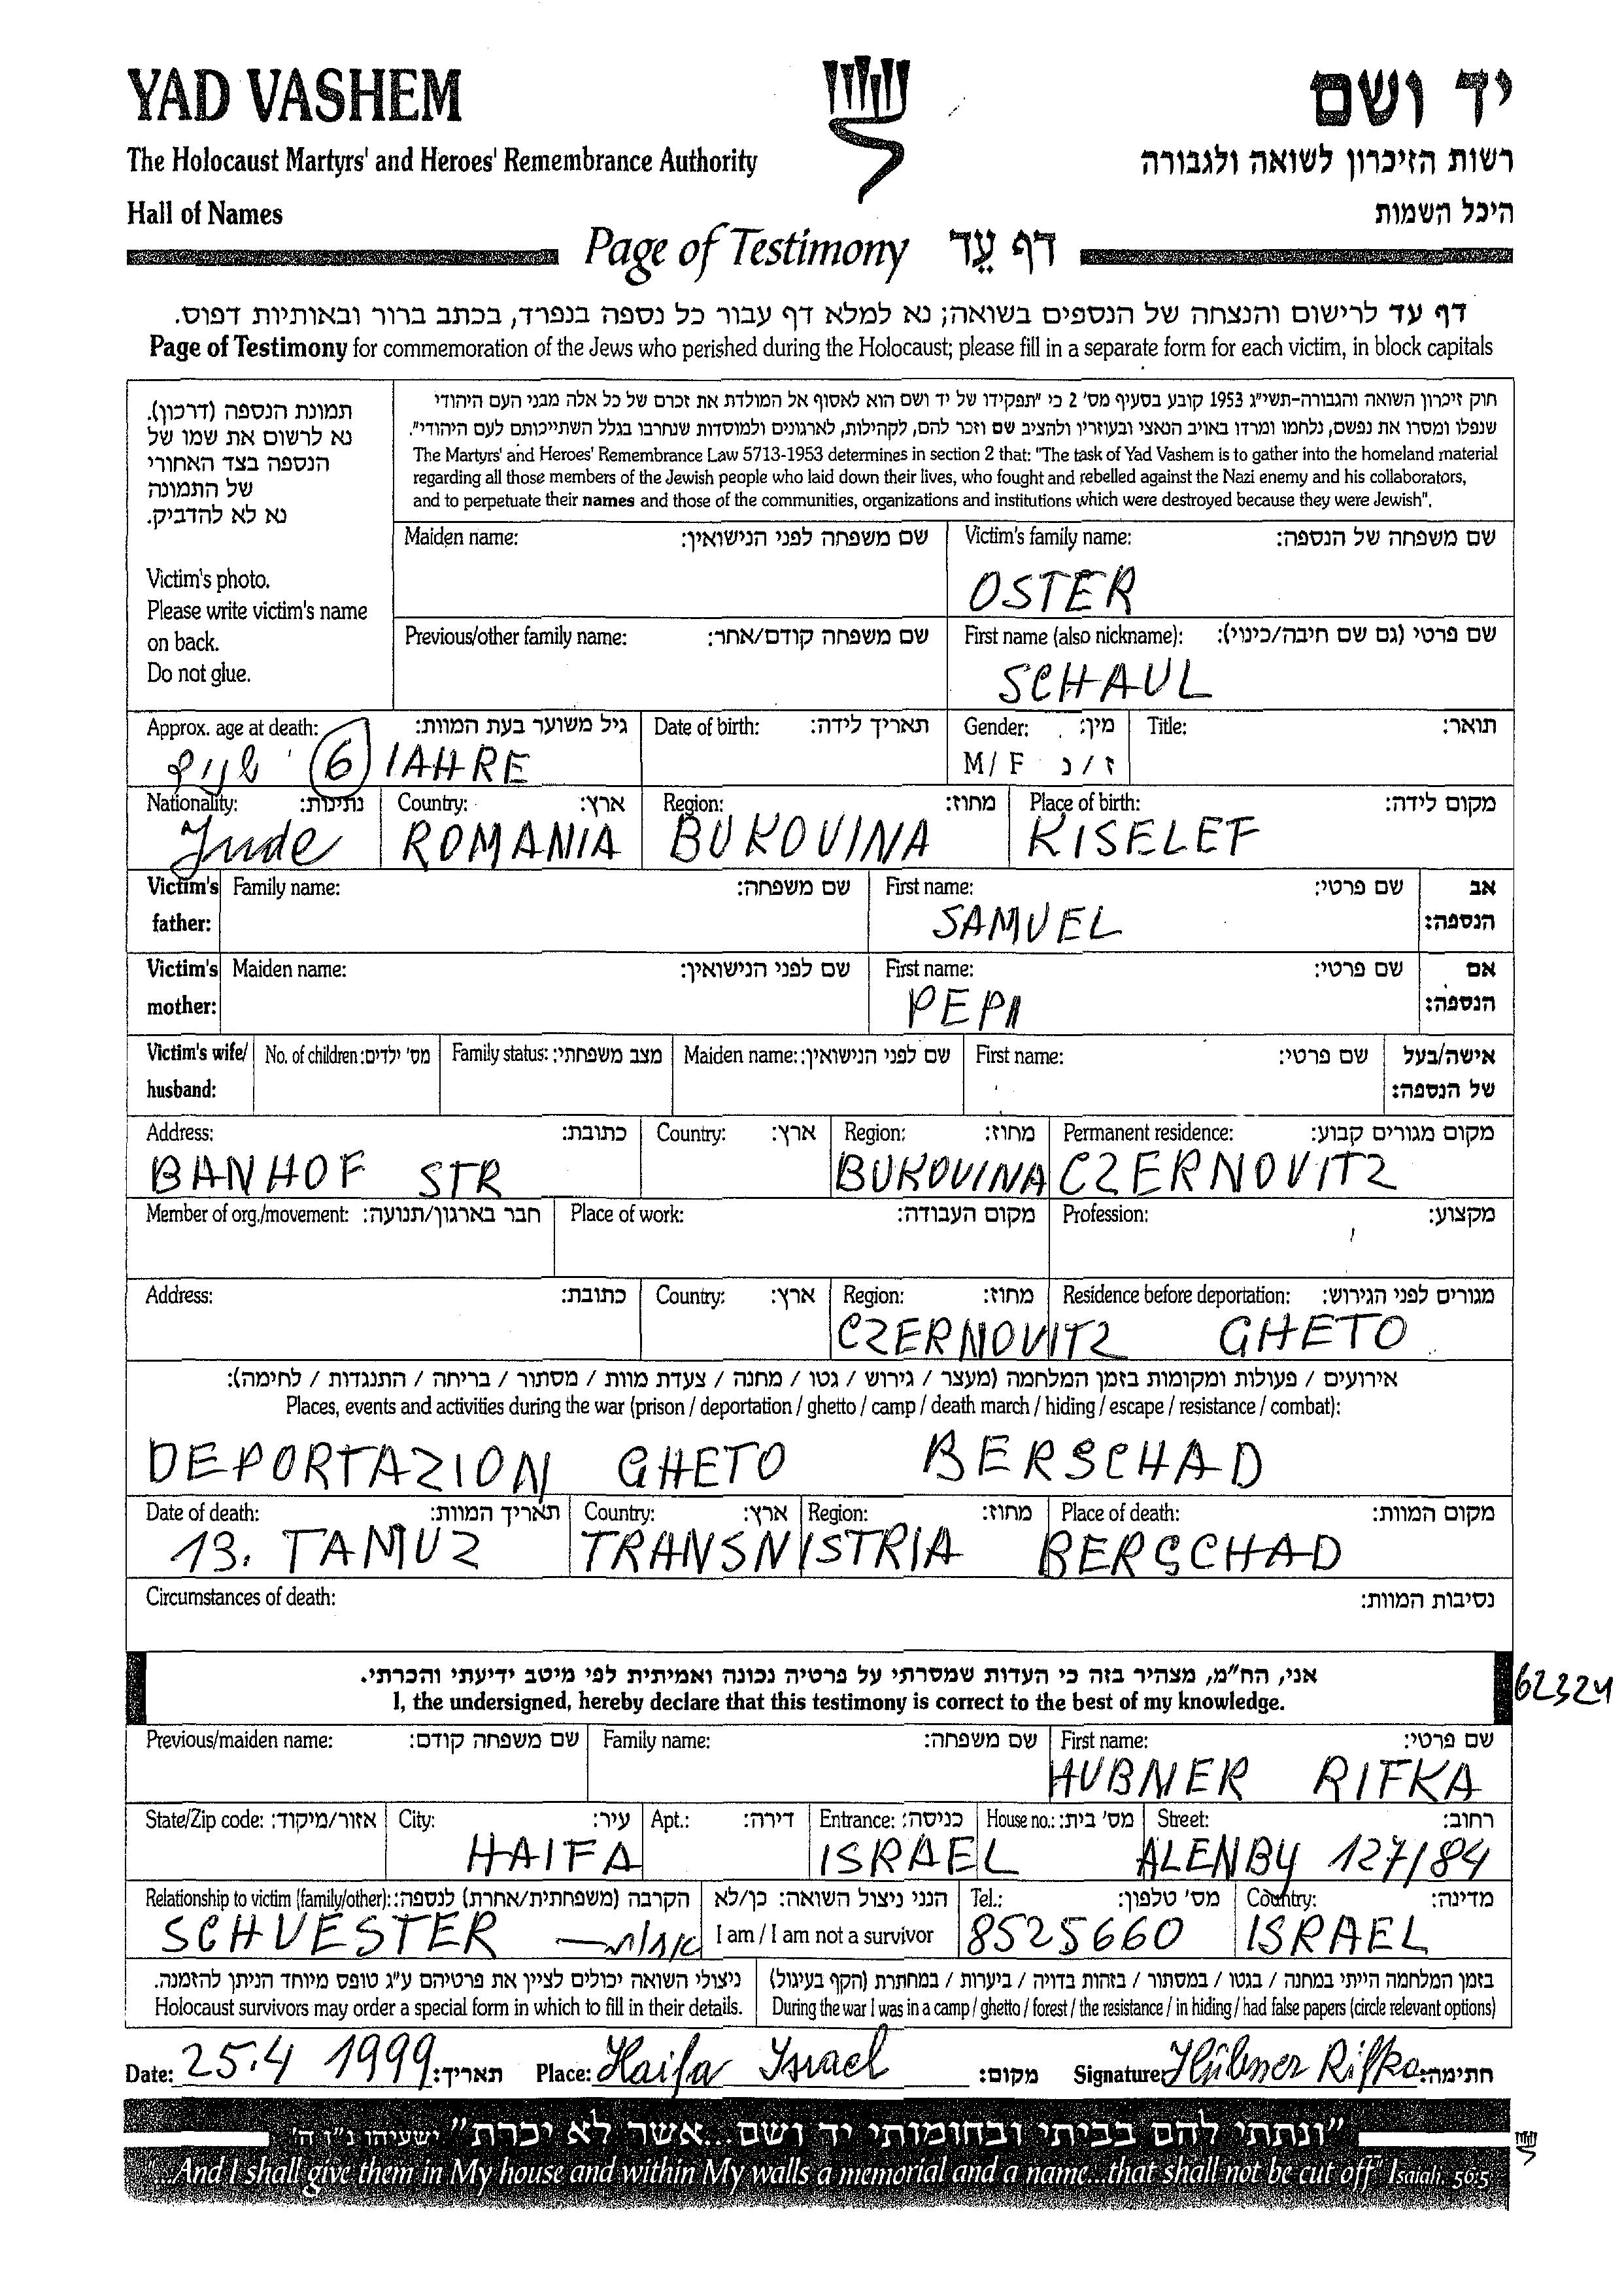 YAD VASHEM
יד ושם
The Holocaust Martyrs' and Heroes' Remembrance Authority
רשות הזיכרון לשואה ולגבורה
Hall of Names
היכל השמות
Page of Testimony דף עֵד
דף עד לרישום והנצחה של הנספים בשואה; נא למלא דף עבור כל נספה בנפרד, בכתב ברור ובאותיות דפוס.
Page of Testimony for commemoration of the Jews who perished during the Holocaust; please fill in a separate form for each victim, in block capitals
תמונת הנספה (דרכון).
נא לרשום את שמו של
הנספה בצד האחורי
של התמונה
נא לא להדביק.
Victim's photo.
Please write victim's name
on back.
Do not glue.
חוק זיכרון השואה והגבורה-תשי"ג 1953 קובע בסעיף מס' 2 כי "תפקידו של יד ושם הוא לאסוף אל המולדת את זכרם של כל אלה מבני העם היהודי
שנפלו ומסרו את נפשם, נלחמו ומרדו באויב הנאצי ובעוזריו ולהציב שם וזכר להם, לקהילות, לארגונים ולמוסדות שנחרבו בגלל השתייכותם לעם היהודי".
The Martyrs' and Heroes' Remembrance Law 5713-1953 determines in section 2 that: "The task of Yad Vashem is to gather into the homeland material
regarding all those members of the Jewish people who laid down their lives, who fought and rebelled against the Nazi enemy and his collaborators,
and to perpetuate their names and those of the communities, organizations and institutions which were destroyed because they were Jewish".
Maiden name: שם משפחה לפני הנישואין: Victim's family name: שם משפחה של הנספה:
OSTER
Previous/other family name: שם משפחה קודם/אחר: First name (also nickname): שם פרטי (גם שם חיבה/כינוי):
SCHAUL
Approx. age at death: גיל משוער בעת המוות: Date of birth: תאריך לידה: Gender: מין: Title: תואר:
6 IAHRE M/F ז/נ
Nationality: נתינות: Country: ארץ: Region: מחוז: Place of birth: מקום לידה:
Jude ROMANIA BUKOVINA KISELEF
Victim's father: Family name: שם משפחה: First name: שם פרטי: אב הנספה:
SAMUEL
Victim's mother: Maiden name: שם לפני הנישואין: First name: שם פרטי: אם הנספה:
PEPI
Victim's wife/ husband: No. of children: מס' ילדים: Family status: מצב משפחתי: Maiden name: שם לפני הנישואין: First name: שם פרטי: אישה/בעל של הנספה:
Address: כתובת: Country: ארץ: Region: מחוז: Permanent residence: מקום מגורים קבוע:
BANHOF STR BUKOVINA CZERNOVITZ
Member of org./movement: חבר בארגון/תנועה: Place of work: מקום העבודה: Profession: מקצוע:
Address: כתובת: Country: ארץ: Region: מחוז: Residence before deportation: מגורים לפני הגירוש:
CZERNOVITZ GHETO
אירועים / פעולות ומקומות בזמן המלחמה (מעצר / גירוש / גטו / מחנה / צעדת מוות / מסתור / בריחה / התנגדות / לחימה):
Places, events and activities during the war (prison / deportation / ghetto / camp / death march / hiding / escape / resistance / combat):
DEPORTAZION GHETO BERSCHAD
Date of death: תאריך המוות: Country: ארץ: Region: מחוז: Place of death: מקום המוות:
13. TAMUZ TRANSNISTRIA BERSCHAD
Circumstances of death: נסיבות המוות:
אני, הח"מ, מצהיר בזה כי העדות שמסרתי על פרטיה נכונה ואמיתית לפי מיטב ידיעתי והכרתי.
I, the undersigned, hereby declare that this testimony is correct to the best of my knowledge.
62324
Previous/maiden name: שם משפחה קודם: Family name: שם משפחה: First name: שם פרטי:
HUBNER RIFKA
State/Zip code: אזור/מיקוד: City: עיר: Apt.: דירה: Entrance: כניסה: House no.: מס' בית: Street: רחוב:
HAIFA ISRAEL ALENBY 127/84
Relationship to victim (family/other): הקרבה (משפחתית/אחרת) לנספה: הנני ניצול השואה: כן/לא Tel.: מס' טלפון: Country: מדינה:
SCHVESTER אחות I am / I am not a survivor 8525660 ISRAEL
ניצולי השואה יכולים לציין את פרטיהם ע"ג טופס מיוחד הניתן להזמנה. בזמן המלחמה הייתי במחנה / בגטו / במסתור / בזהות בדויה / ביערות / במחתרת (הקף בעיגול)
Holocaust survivors may order a special form in which to fill in their details. During the war I was in a camp / ghetto / forest / the resistance / in hiding / had false papers (circle relevant options)
Date: 25.4 1999 תאריך: Place: Haifa Israel מקום: Signature: Hübner Rifka חתימה:
"ונתתי להם בביתי ובחומותי יד ושם...אשר לא יכרת" ישעיהו נ"ו ה'
"...And I shall give them in My house and within My walls a memorial and a name...that shall not be cut off" Isaiah, 56:5